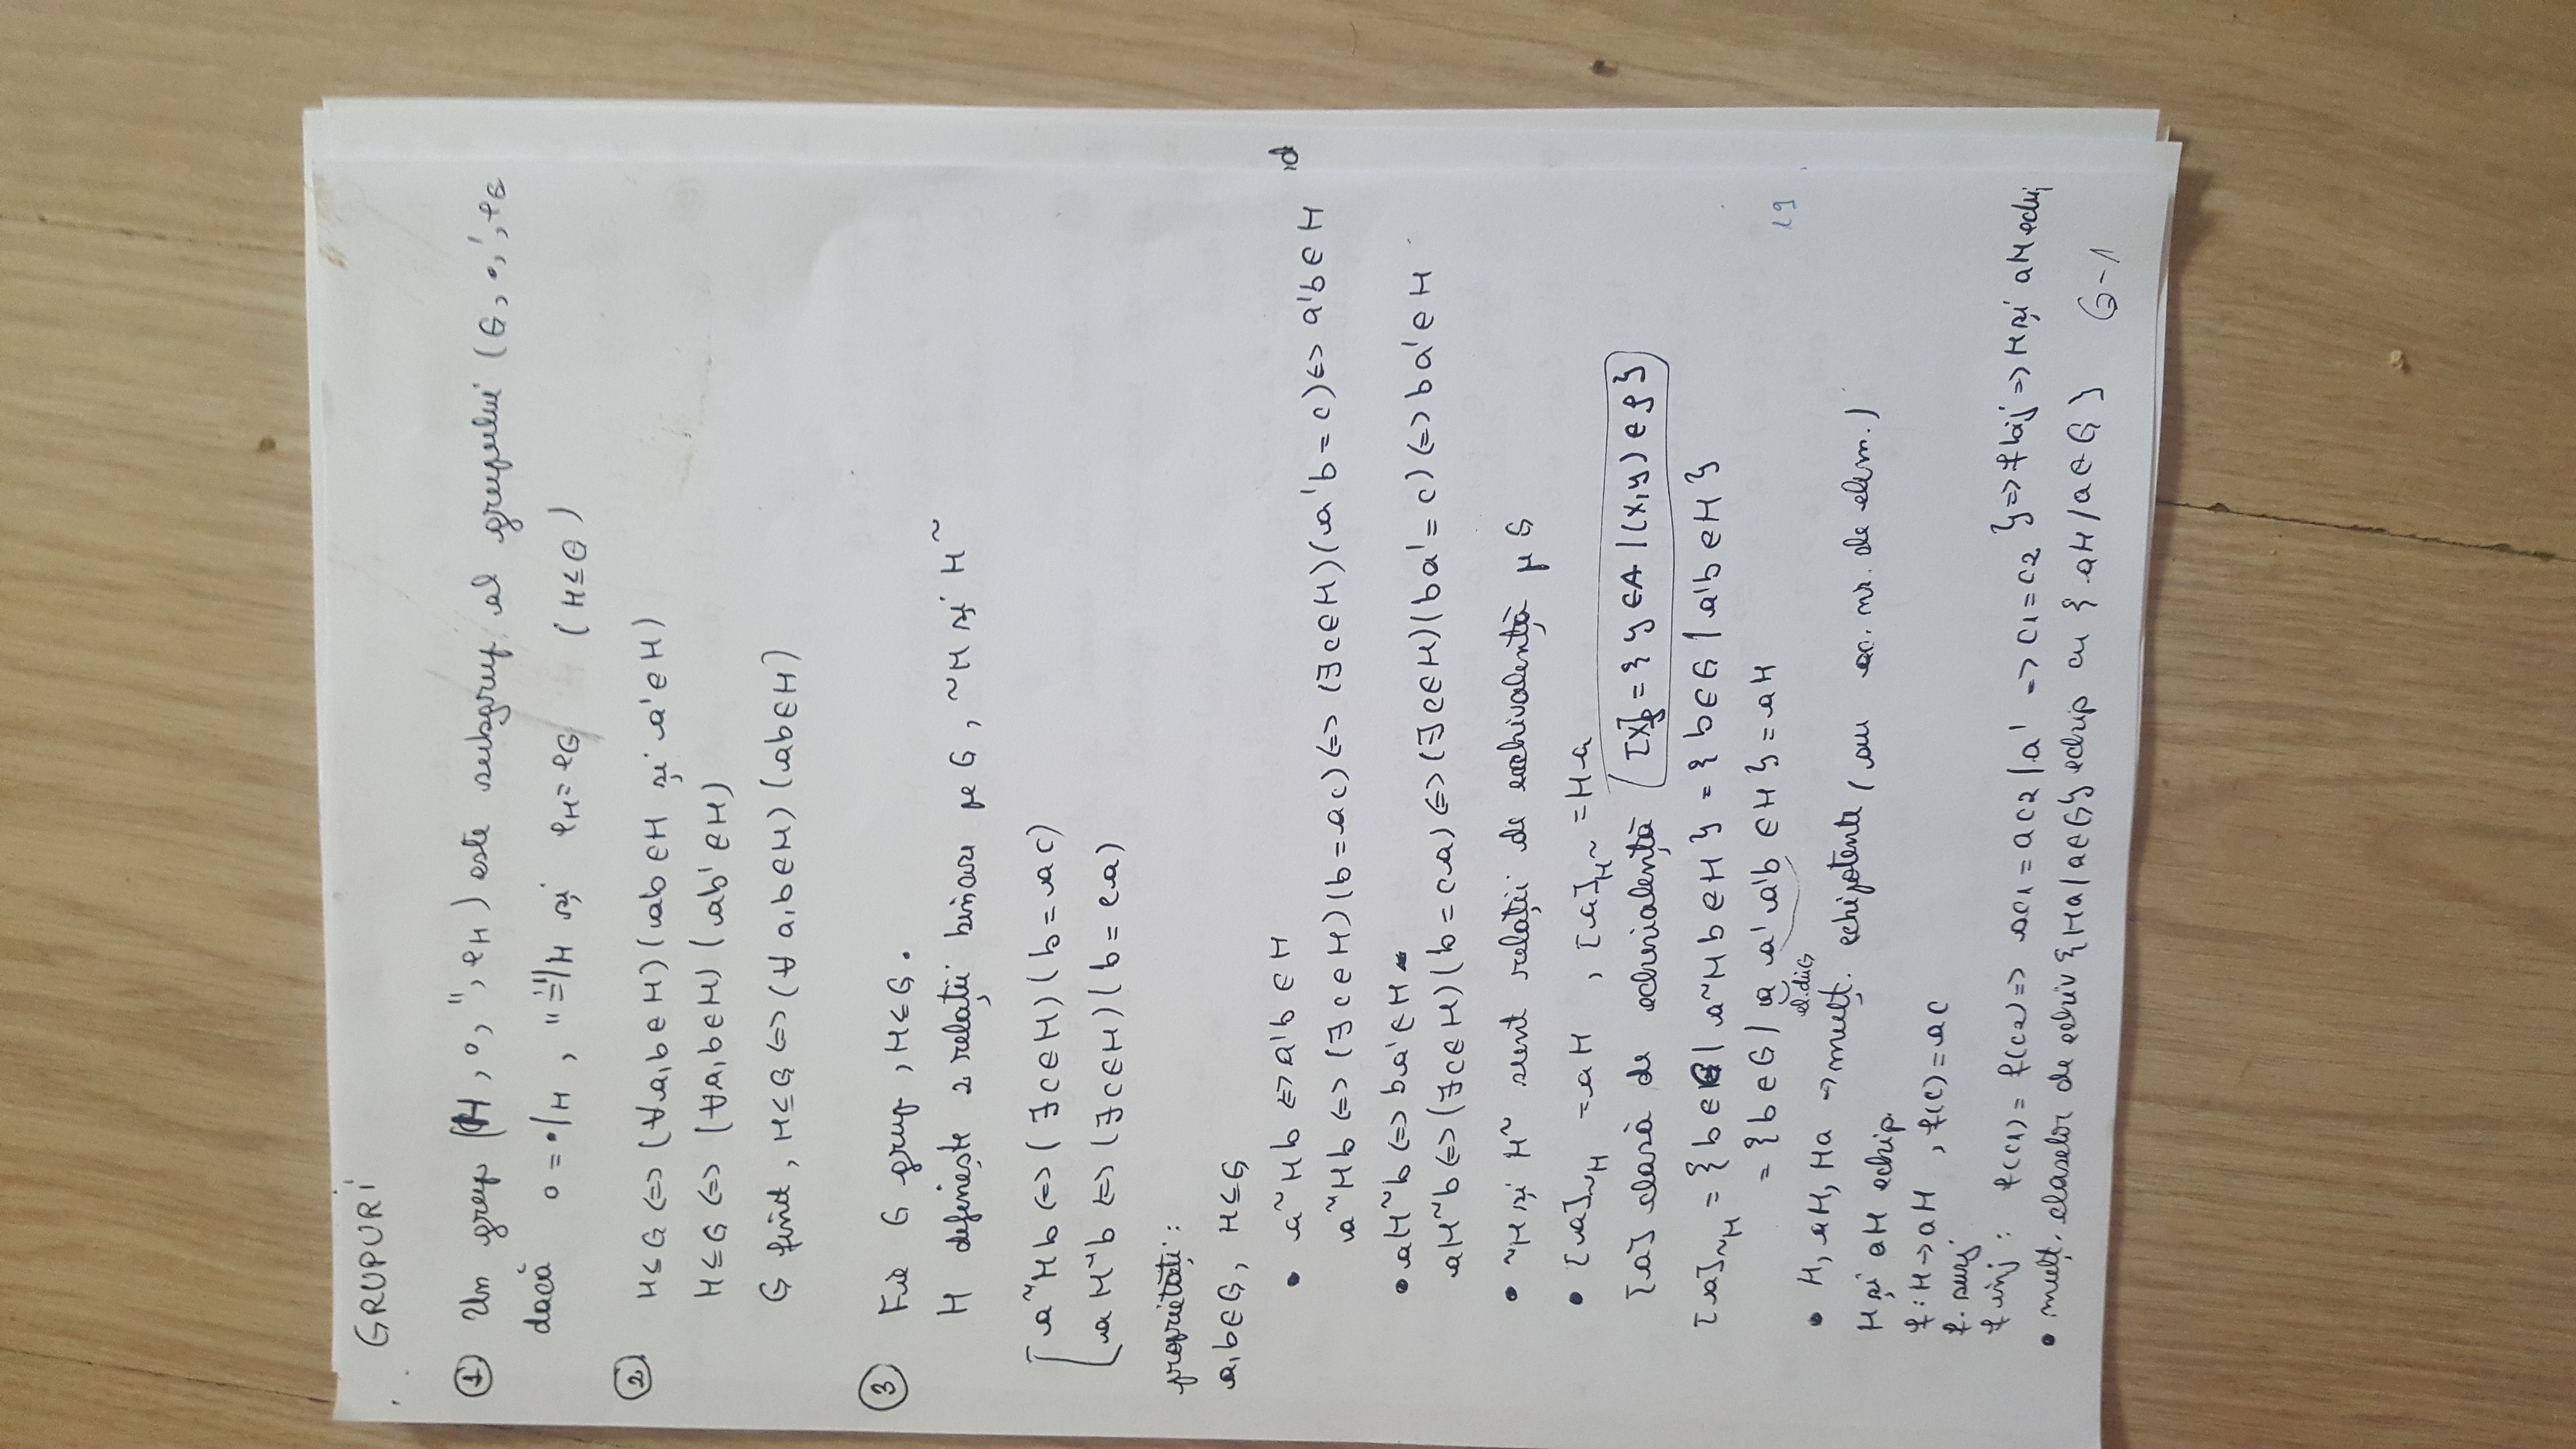 GRUPURI
① Un grup (H, ∘, ", eH) este subgrup al grupului (G, •, ', eG
dacă ∘ = •/H, " = '/H și eH = eG (H ≤ G)
② H ≤ G <=> (∀a,b∈H)(ab∈H și a'∈H)
H ≤ G <=> (∀a,b∈H)(ab'∈H)
G finit, H ≤ G <=> (∀a,b∈H)(ab∈H)
③ Fie G grup, H ≤ G.
H definește 2 relații binare pe G, ~H și H~
a ~H b <=> (∃c∈H)(b = ac)
a H~ b <=> (∃c∈H)(b = ca)
proprietăți:
a,b∈G, H ≤ G
• a ~H b <=> a'b ∈ H
a ~H b <=> (∃c∈H)(b = ac) <=> (∃c∈H)(a'b = c) <=> a'b ∈ H
• a H~ b <=> ba' ∈ H
a H~ b <=> (∃c∈H)(b = ca) <=> (∃c∈H)(ba' = c) <=> ba' ∈ H
• ~H și H~ sunt relații de echivalență pe G
• [a]~H = aH, [a]H~ = Ha
[a] clasă de echivalență [x]ρ = {y∈A | (x,y) ∈ ρ}
[a]~H = {b∈G | a ~H b ∈ H} = {b∈G | a'b ∈ H}
= {b∈G | a a' a'b ∈ H} = aH
el. din G
• H, aH, Ha -> mulț. echipotente (au ac. nr. de elem.)
H și aH echip.
f: H -> aH, f(c) = ac
f. surj
f inj: f(c1) = f(c2) => ac1 = ac2 | a' => c1 = c2 } => f bij => H și aH echi
• mulț. claselor de echiv {Ha/a∈G} echip cu {aH/a∈G}
G-1
19